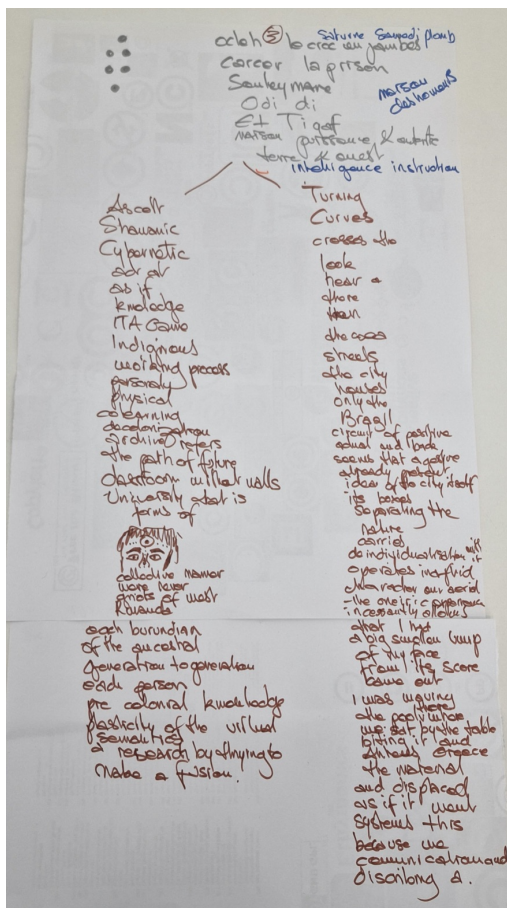 Saturne Samedi plomb
Carcer la prison
Souleymane
maison des homans
Odi di
Et Ti
maison puissance & autorité
terre & ouest
intelligence instruction
Ascolt
Shamanic
Cybernetic
as if
knoledge
ITA Game
Indignous
working process
personaly
physical
colearning
decolonization
archive refers
the path of future
classroom without walls
University that is
forms of
collective
were never
of west
Rwanda
each burundian
of the ancestral
generation to generation
each person
pre colonial knowledge
plasticity of the virtual
semantics
a research by trying to
make a fusion.
Turning
Curves
crosses the
look
hear a
there
the
streets
the city
houses
only the
Brasil
circuit of positive
actual and
seems that a
already present
idea of the city itself
its boxes
separating the
nature
carries
deindividualisation with
operates in
character our
the oneiric experience
incessantly
that I had
a big swollen lump
of my face
from its score
came out
I was moving
there
the people whom
we sat by the table
biting it and
Greece
the material
and displaced
as if it went
systems this
because we
communication and
discribing a.